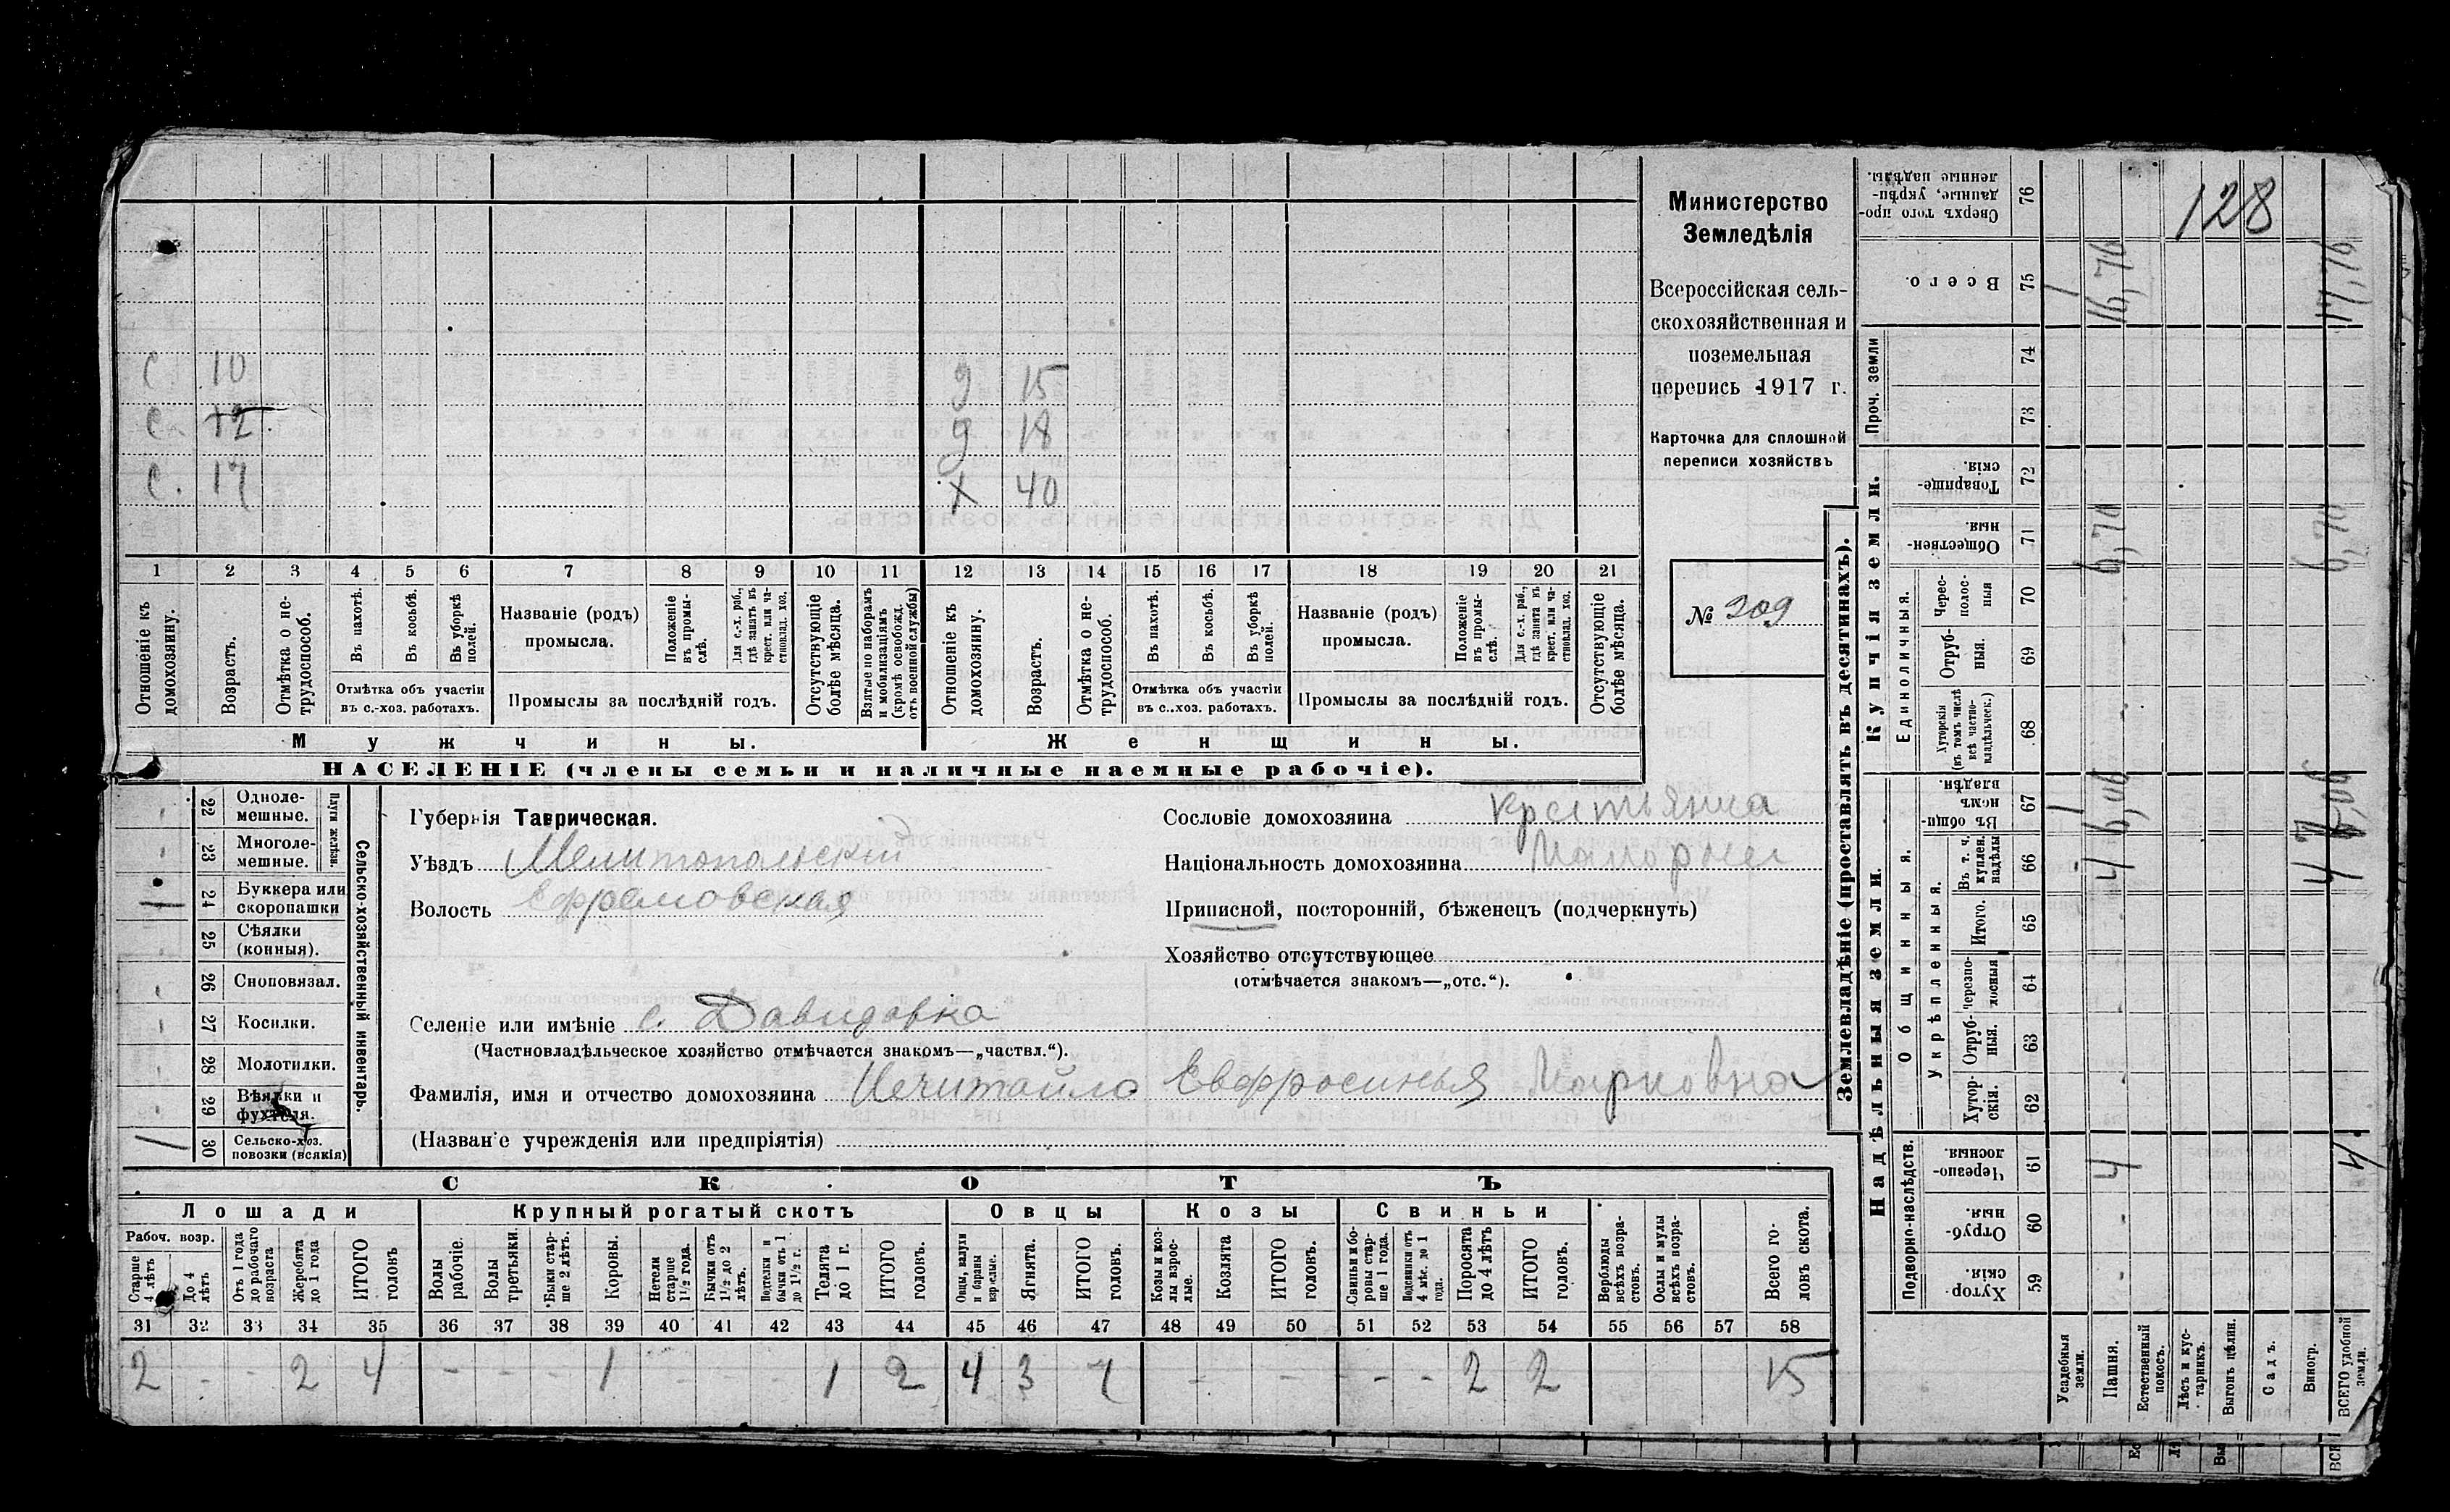 128
Министерство
Земледѣлія
Всероссійская сель-
скохозяйственная и
поземельная
перепись 1917 г.
Карточка для сплошной
переписи хозяйствъ
№ 209
с 10
с. 12
с. 17
д 15
д 18
х 40
1 2 3 4 5 6 7 8 9 10 11 12 13 14 15 16 17 18 19 20 21
Отношеніе къ домохозяину.
Возрастъ.
Отмѣтка о не-трудоспособ.
Въ пахотѣ.
Въ косьбѣ.
Въ уборкѣ полей.
Отмѣтка объ участіи
въ с.-хоз. работахъ.
Названіе (родъ)
промысла.
Положеніе въ промы-слѣ.
Для с.-х. раб., гдѣ занятъ въ крест. или ча-стновлад. хоз.
Промыслы за послѣдній годъ.
Отсутствующіе болѣе мѣсяца.
Взятые по наборамъ и мобилизаціямъ (кромѣ освобожд. отъ военной службы)
Отношеніе къ домохозяину.
Возрастъ.
Отмѣтка о не-трудоспособ.
Въ пахотѣ.
Въ косьбѣ.
Въ уборкѣ полей.
Отмѣтка объ участіи
въ с..хоз. работахъ.
Названіе (родъ)
промысла.
Положеніе въ промы-слѣ.
Для с.-х. раб., гдѣ занята въ крест. или ча-стновлад. хоз.
Промыслы за послѣдній годъ.
Отсутствующіе болѣе мѣсяца.
Мужчины.
Женщины.
НАСЕЛЕНІЕ (члены семьи и наличные наемные рабочіе).
Сельско-хозяйственный инвентарь.
Плуги желѣзн.
22 Одноле-мешные.
23 Многоле-мешные.
1 24 Буккера или скоропашки
25 Сѣялки (конныя).
26 Сноповязал.
27 Косилки.
28 Молотилки.
29 Вѣялки и фухтеля.
1 30 Сельско-хоз. повозки (всякія)
Губернія Таврическая.
Уѣздъ Мелитопольскій
Волость Ефремовская
Сословіе домохозяина крестьянка
Національность домохозяина
Приписной, посторонній, бѣженецъ (подчеркнуть)
Хозяйство отсутствующее
(отмѣчается знакомъ—„отс.“).
Селеніе или имѣніе с. Давидовка
(Частновладѣльческое хозяйство отмѣчается знакомъ—„частвл.“).
Фамилія, имя и отчество домохозяина Нечитайло Евфросинья Марковна
(Названіе учрежденія или предпріятія)
СКОТЪ
Лошади
Крупный рогатый скотъ
Овцы
Козы
Свиньи
Рабоч. возр.
Старше 4 лѣтъ
До 4 лѣтъ
Отъ 1 года до рабочаго возраста
Жеребята до 1 года
ИТОГО головъ
Волы рабочіе.
Волы третьяки.
Быки стар-ше 2 лѣтъ.
Коровы.
Нетели старше 1½ года.
Бычки отъ 1½ до 2 лѣтъ.
Подтелки и бычки отъ 1 до 1½ г.
Телята до 1 г.
ИТОГО головъ.
Овцы, валухи и бараны взрослые.
Ягнята.
ИТОГО головъ.
Козы и коз-лы взрос-лые.
Козлята
ИТОГО головъ.
Свиньи и бо-ровы стар-ше 1 года.
Подсвинки отъ 4 мѣс. до 1 года.
Поросята до 4 лѣтъ
ИТОГО головъ.
Верблюды всѣхъ возра-стовъ.
Ослы и мулы всѣхъ возра-стовъ.
Всего го-ловъ скота.
31 32 33 34 35 36 37 38 39 40 41 42 43 44 45 46 47 48 49 50 51 52 53 54 55 56 57 58
2 - - 2 4 - - - 1 - - - 1 2 4 3 7 - - - - 2 2 15
Землевладѣніе (проставлять въ десятинахъ).
Купчія земли.
Надѣльныя земли.
Сверхъ того про-данные, укрѣп-ленные надѣлы. 76
Всего. 75 16,70 17,76
Проч. земли 74
73
Товарище-скія. 72
Обществен-ныя. 71 6,70 6,70
Единоличныя.
Черес-полос-ныя 70
Отруб-ныя. 69
Хуторскія (въ томъ числѣ всѣ частно-владѣльческ.) 68
Общинныя.
Въ общи-номъ владѣн. 67
Укрѣпленныя.
Въ т. ч. куплен. надѣлы 66 4
Итого. 65
Черезпо-лосныя 64
Отруб-ныя. 63
Хутор-скія. 62
Подворно-наслѣдств.
Черезпо-лосныя. 61 4 4
Отруб-ныя. 60
Хутор-скія. 59
Усадебныя земли.
Пашня.
Естественный покосъ.
Лѣсъ и кус-тарникъ.
Выгонъ цѣлин.
Садъ.
Виногр.
ВСЕГО удобной земли.